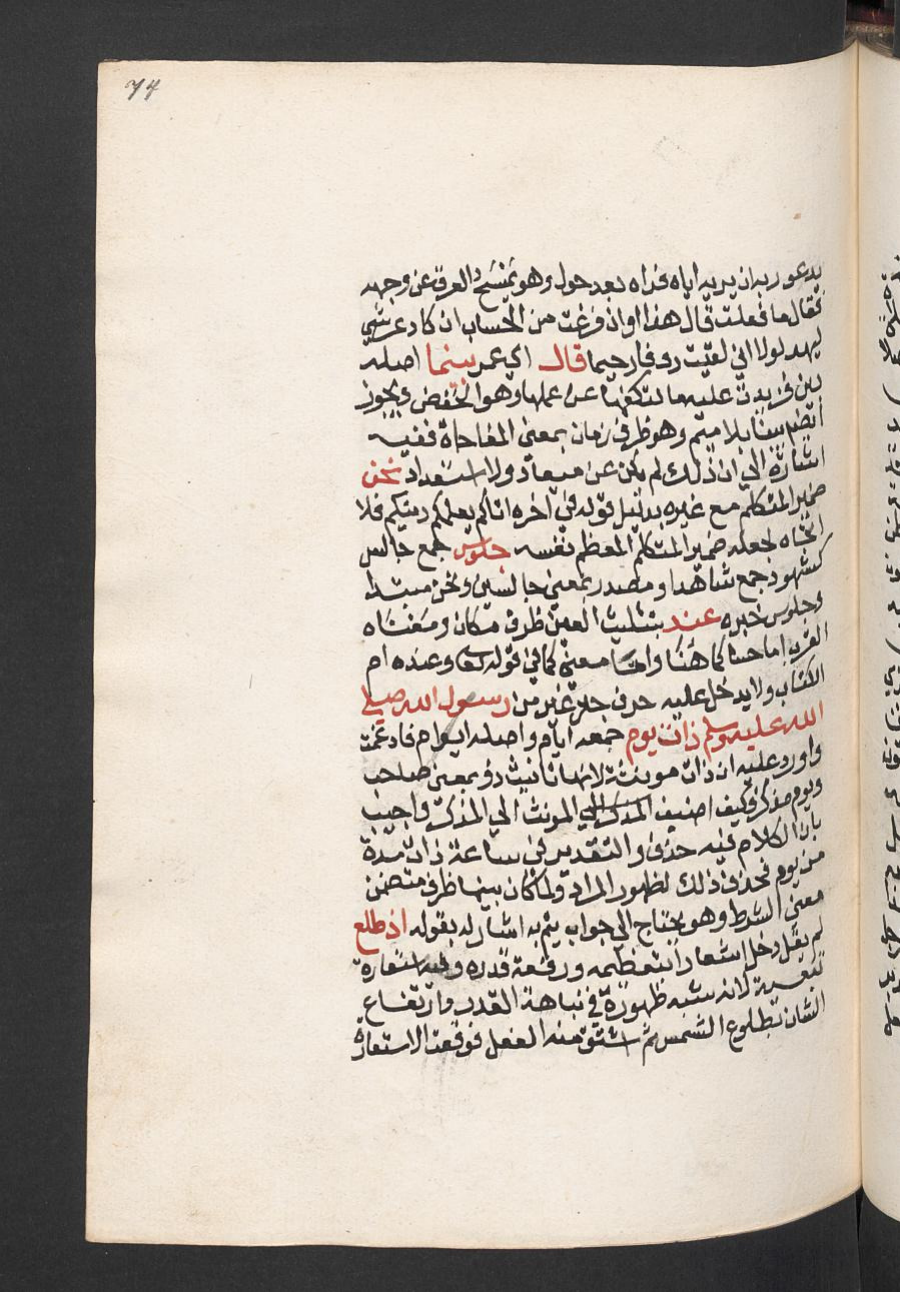 74
يدعو ربه ان يريه اياه فراه بعد حول وهو يمسح العرق عن وجهه
فقال ما فعلت قال هذا اوان فرغت من الحساب ان كاد عرشي
ليهد لولا اني لقيت رؤفا رحيما قال اي عمر بينما اصله
بين فزيدت عليه ما لتكفها عن عملها وهو الخفض ويجوز
بلا ميم وهو ظرف زمان بمعنى المفاجاة ففيه
اشارة الى ان ذلك لم يكن عن ميعاد ولا استعداد نحن
ضمير المتكلم مع غيره بدليل قوله في اخره اتاكم يعلمكم دينكم فلا
اتجاه لجعله ضمير المتكلم المعظم نفسه جلوس جمع جالس
كشهود جمع شاهد او مصدر بمعنى جالسين ونحن مبتدا
وجلوس خبره عند بتثليث العين ظرف مكان ومعناه
القرب اما حسا كما هنا واما معنى كما في قوله تعا وعنده ام
الكتاب ولا يدخل عليه حرف جر غير من رسول الله صلى
الله عليه وسلم ذات يوم جمعه ايام واصله ايوام فادغمت
واورد عليه ان ذات مونثة لانها تانيث ذو بمعنى صاحب
ويوم مذكر فكيف اضيف المونث الى المذكر واجيب
بان الكلام فيه حذف والتقدير في ساعة ذات مدة
من يوم فحذف ذلك لظهور المراد ولما كان بينما ظرف متضمن
معنى الشرط وهو يحتاج الى جواب يتم به اشار له بقوله اذ طلع
لم يقل دخل اشعارا بتعظيمه ورفعة قدره وفيه استعارة
تبعية لانه شبه ظهوره في نباهة القدر وارتفاع
الشان بطلوع الشمس ثم اشتق منه الفعل فوقعت الاستعارة